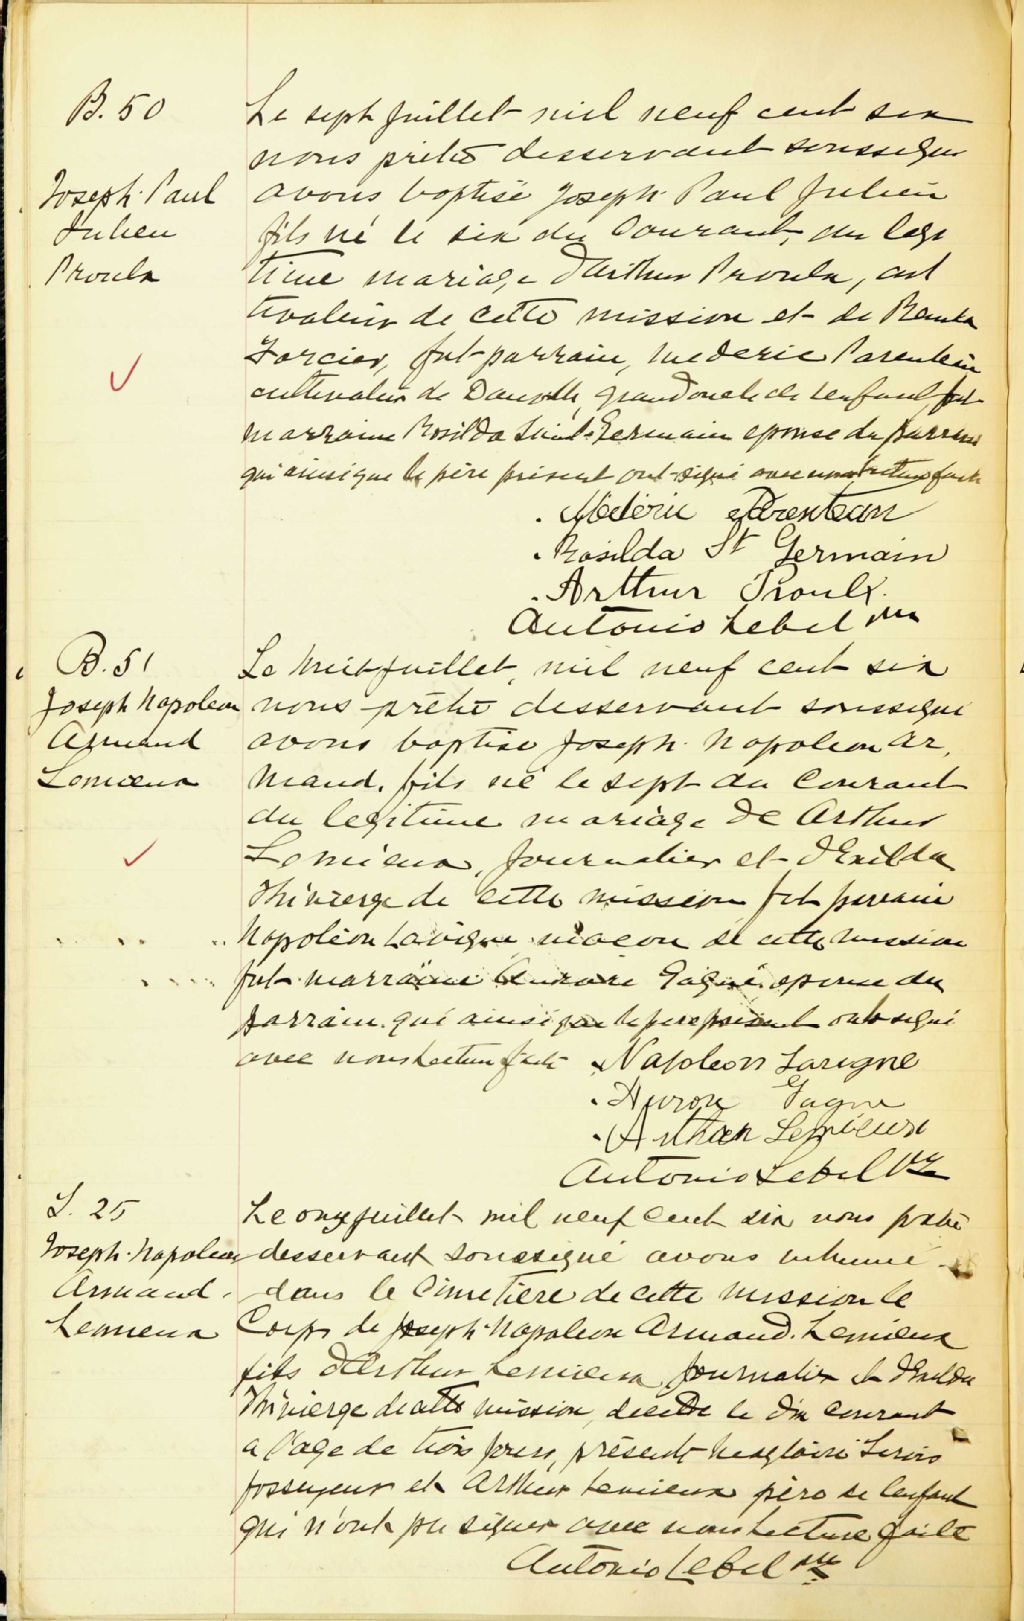 B. 50
Joseph Paul
Julien
Proulx
Le sept juillet mil neuf cent six
nous prêtre desservant soussigné
avons baptisé Joseph Paul Julien
fils né le six du courant, du légi
time mariage d'Arthur Proulx, cul
tivateur de cette mission et de
Forcier, fut parrain, Mederic Parenteau
cultivateur de grand oncle de l'enfant, fut
marraine Rosilda Saint-Germain epouse du parrain
qui ainsi que le père présent ont signé avec nous lecture faite
Médéric Parenteau
Rosilda St Germain
Arthur Proulx
Antonio Lebel ptre
B. 51
Joseph Napoleon
Armand
Lemieux
Le huit juillet, mil neuf cent six
nous prêtre desservant soussigné
avons baptisé Joseph Napoleon Ar,
mand, fils né le sept du courant
du legitime mariage de Arthur
Lemieux, journalier et d'Exilda
Thivierge de cette mission fut parrain
Napoléon Lavigne maçon de cette mission
fut marraine Aurore Gagné epouse du
parrain qui ainsi que le pere présent ont signé
avec nous lecture faite
Napoleon Lavigne
Auror Gagne
Arthur Lemieux
Antonio Lebel ptre
S. 25
Joseph Napoleon
Armand
Lemieux
Le onze juillet mil neuf cent six nous prêtre
desservant soussigné avons inhumé
dans le cimetière de cette mission le
Corps de Joseph Napoleon Armand Lemieux
fils d'Arthur Lemieux journalier et d'Exilda
Thivierge de cette mission, decédé le dix courant
a l'age de trois jours, présent
fossoyeur et Arthur Lemieux père de l'enfant
qui n'ont pu signer avec nous lecture faite
Antonio Lebel ptre